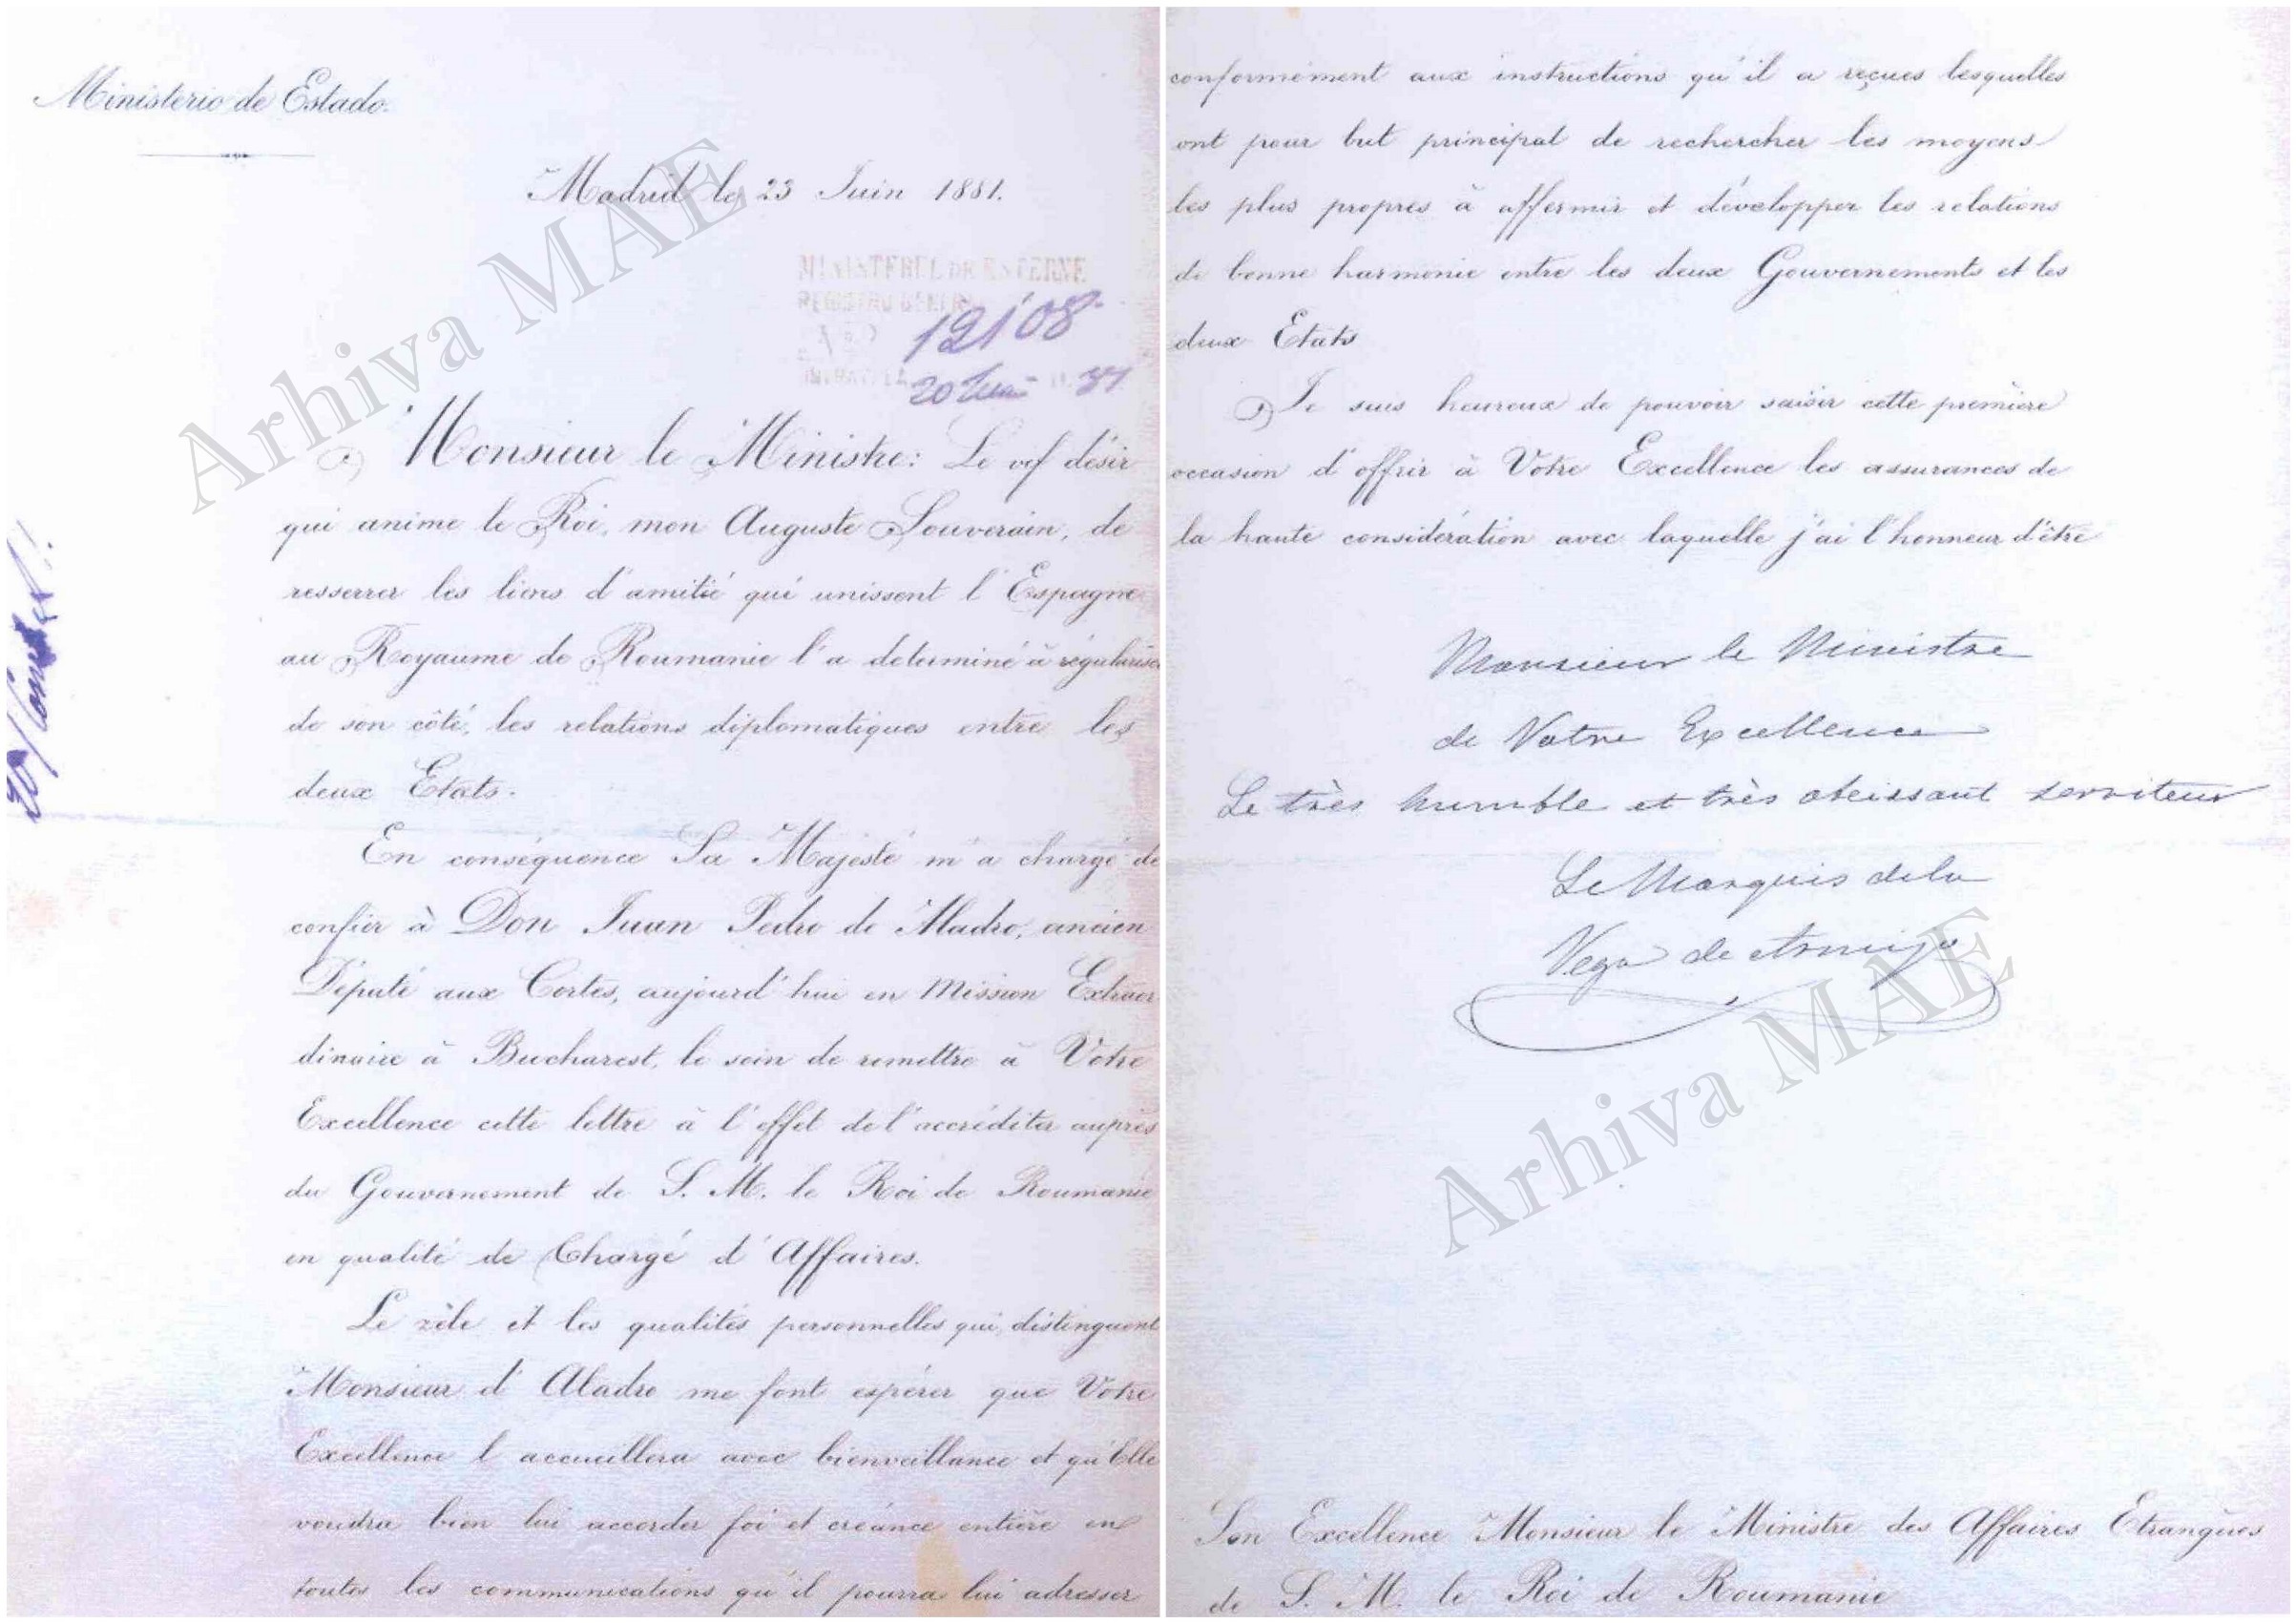 Ministerio de Estado.
Madrid le 23 Juin 1881.
MINISTERUL DE ESTERNE
REGISTRU GENERAL
12108
20 81
Monsieur le Ministre: Le vif désir
qui anime le Roi, mon Auguste Souverain, de
resserrer les liens d'amitié qui unissent l'Espagne
au Royaume de Roumanie l'a determiné à régulariser
de son côté, les relations diplomatiques entre les
deux Etats.
En conséquence Sa Majesté m'a chargé de
confier à Don Juan Pedro de Aladro, ancien
Député aux Cortes, aujourd'hui en Mission Extraor
dinaire à Bucharest, le soin de remettre à Votre
Excellence cette lettre à l'effet de l'accréditer auprès
du Gouvernement de S. M. le Roi de Roumanie
en qualité de Chargé d'Affaires.
Le zèle et les qualités personnelles qui distinguent
Monsieur d'Aladro me font espérer que Votre
Excellence l'accueillera avec bienveillance et qu'Elle
voudra bien lui accorder foi et créance entière en
toutes les communications qu'il pourra lui adresser
Arhiva MAE
conformément aux instructions qu'il a reçues lesquelles
ont pour but principal de rechercher les moyens
les plus propres à affermir et développer les relations
de bonne harmonie entre les deux Gouvernements et les
deux Etats
Je suis heureux de pouvoir saisir cette première
occasion d'offrir à Votre Excellence les assurances de
la haute considération avec laquelle j'ai l'honneur d'être
Monsieur le Ministre
de Votre Excellence
Le très humble et très obeissant serviteur
Le Marquis de la
Vega de Armijo
Arhiva MAE
Son Excellence Monsieur le Ministre des Affaires Etrangères
de S. M. le Roi de Roumanie